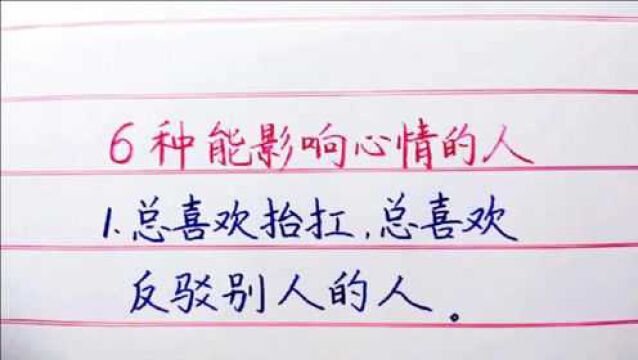 6种能影响心情的人
1.总喜欢抬扛,总喜欢
反驳别人的人。